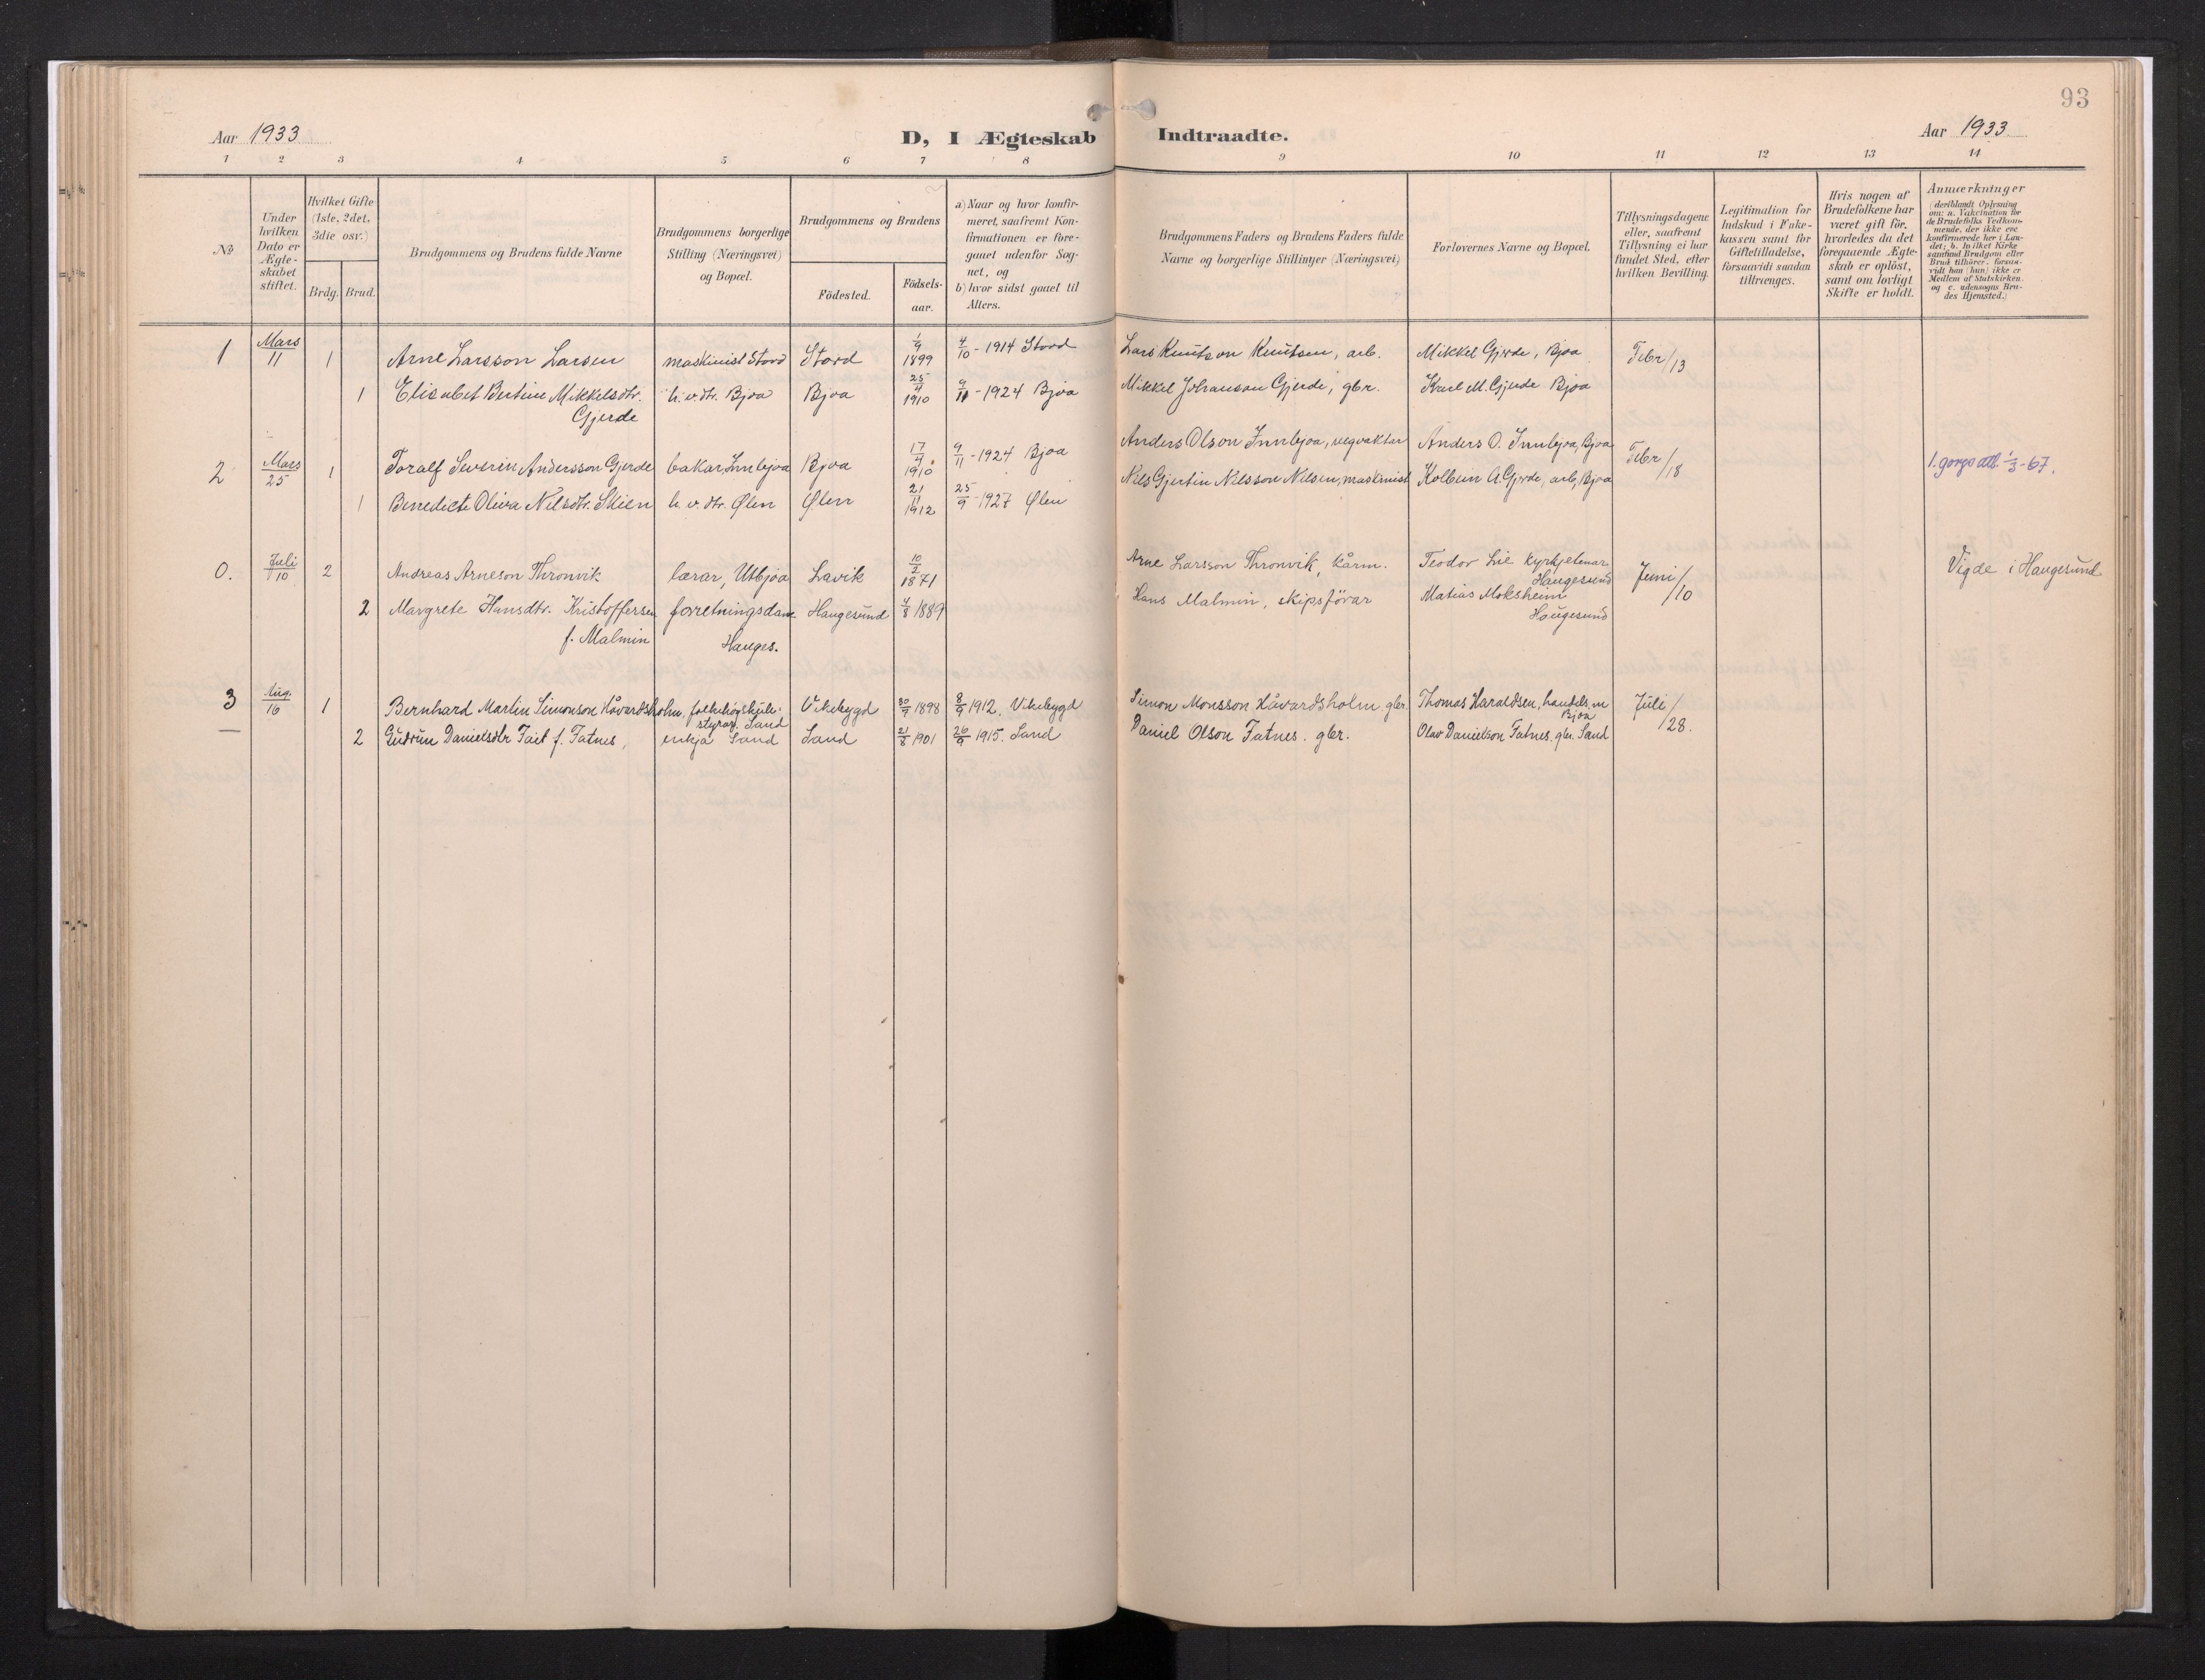 93
Aar 1933
D, I Ægteskab Indtraadte.
Aar 1933
1 2 3 4 5 6 7 8 9 10 11 12 13 14
No
Under
hvilken
Dato er
Ægte-
skabet
stiftet.
Hvilket Gifte
(1ste, 2det,
3die osv.)
Brdg. Brud.
Brudgommens og Brudens fulde Navne
Brudgommens borgerlige
Stilling (Næringsvei)
og Bopæl.
Brudgommens og Brudens
Födested.
Födsels-
aar.
a) Naar og hvor konfir-
meret, saafremt Kon-
firmationen er fore-
gaaet udenfor Sog-
net, og
b) hvor sidst gaaet til
Alters.
Brudgommens Faders og Brudens Faders fulde
Navne og borgerlige Stillinger (Næringsvei)
Forlovernes Navne og Bopæl.
Tillysningsdagene
eller, saafremt
Tillysning ei har
fundet Sted, efter
hvilken Bevilling.
Legitimation for
Indskud i Enke-
kassen samt for
Giftetilladelse,
forsaavidt saadan
tiltrænges.
Hvis nogen af
Brudefolkene har
været gift för,
hvorledes da det
foregaaende Ægte-
skab er oplöst,
samt om lovligt
Skifte er holdt.
Anmærkninger
(deriblandt Oplysning
om: a. Vakcination for
de Brudefolks Vedkom-
mende, der ikke ere
konfirmerede her i Lan-
det; b. hvilket Kirke-
samfund Brudgom eller
Brud tilhörer, forsaa-
vidt han (hun) ikke er
Medlem af Statskirken,
og c. udensogns Bru-
des Hjemsted.)
1 Mars/11 1 Arne Larsson Larsen maskinist Stord Stord 1/9 1899 4/10 - 1914 Stord Lars Knutson Knutsen, arb. Mikkel Gjerde, Bjoa Febr/13
1 Elisabet Bertine Mikkelsdtr. h. v. dtr. Bjoa Bjoa 25/4 1910 9/11 - 1924 Bjoa Mikkel Johanson Gjerde, gbr. Karl M. Gjerde Bjoa
Gjerde
2 Mars/25 1 Toralf Severin Andersson Gjerde bakar Innbjoa Bjoa 17/4 1910 9/11 - 1924 Bjoa Anders Olson Innbjoa, vegvaktar Anders O. Innbjoa, Bjoa Febr/18 1. gongs att. 1/3 - 67.
1 Benedicte Oliva Nilsdtr. Skien h. v. dtr. Ølen Ølen 21/11 1912 25/9 - 1927 Ølen Nils Gjertin Nilsson Nilsen, maskinist Kolbein A. Gjerde, arb, Bjoa
0. Juli/10 2 Andreas Arneson Thronvik lærar, Utbjoa Lavik 10/2 1871 Arne Larsson Thronvik, kårm. Teodor Lie kyrkjetenar Juni/10 Vigde i Haugesund
Haugesund
2 Margrete Hansdtr. Kristoffersen forretningsdame Haugesund 4/8 1889 Hans Malmin, skipsförar Matias Moksheim
f. Malmin Hauges. Haugesund
3 Aug./16 1 Bernhard Martin Simonson Håvardsholm. folkehøgskule- Vikebygd 30/7 1898 8/9 1912. Vikebygd Simon Monsson Håvardsholm gbr. Thomas Haraldsen, handelsm Juli/28.
styrar, Sand Bjoa
2 Gudrun Danielsdtr Tait f. Fatnes, enkja Sand Sand 21/8 1901 26/9 1915. Sand Daniel Olson Fatnes. gbr. Olav Danielson Fatnes. gbr. Sand